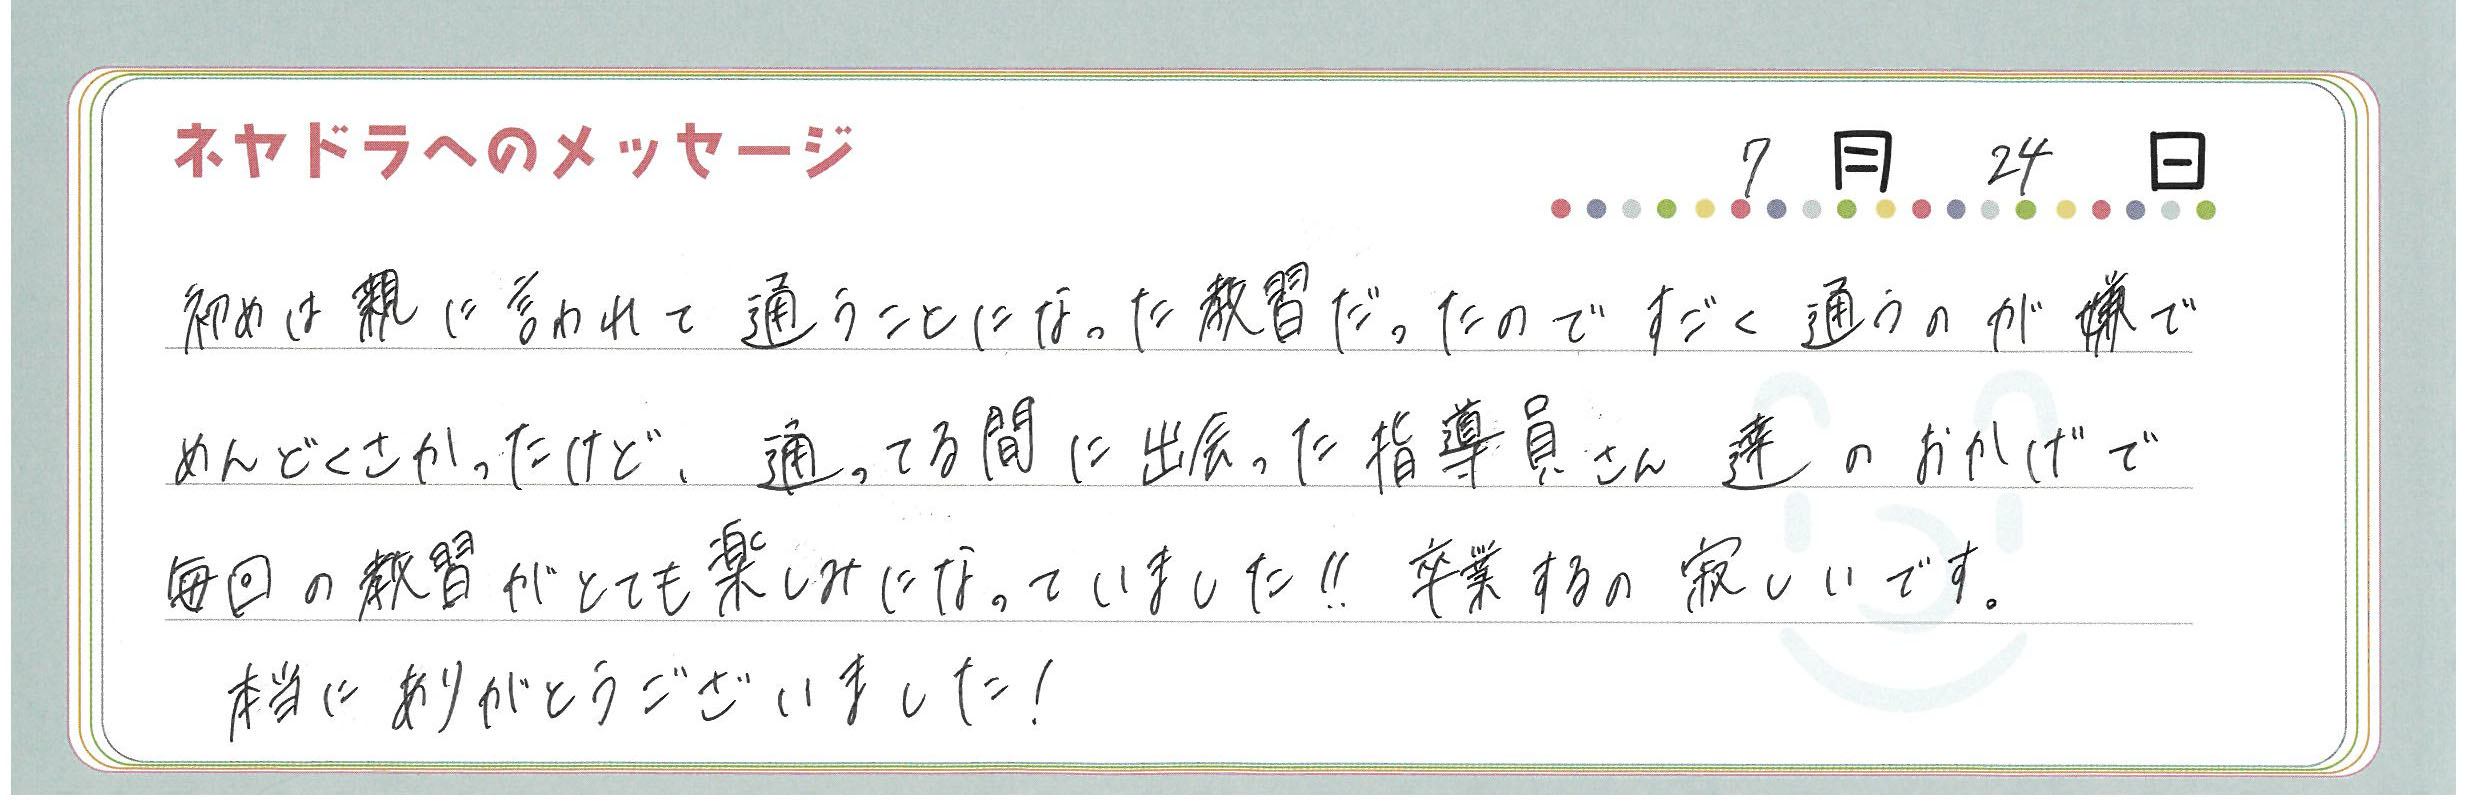 ネヤドラへのメッセージ
7月24日
初めは親に言われて通うことになった教習だったのですごく通うのが嫌で
めんどくさかったけど、通ってる間に出会った指導員さん達のおかげで
毎回の教習がとても楽しみになっていました!!卒業するの寂しいです。
本当にありがとうございました!